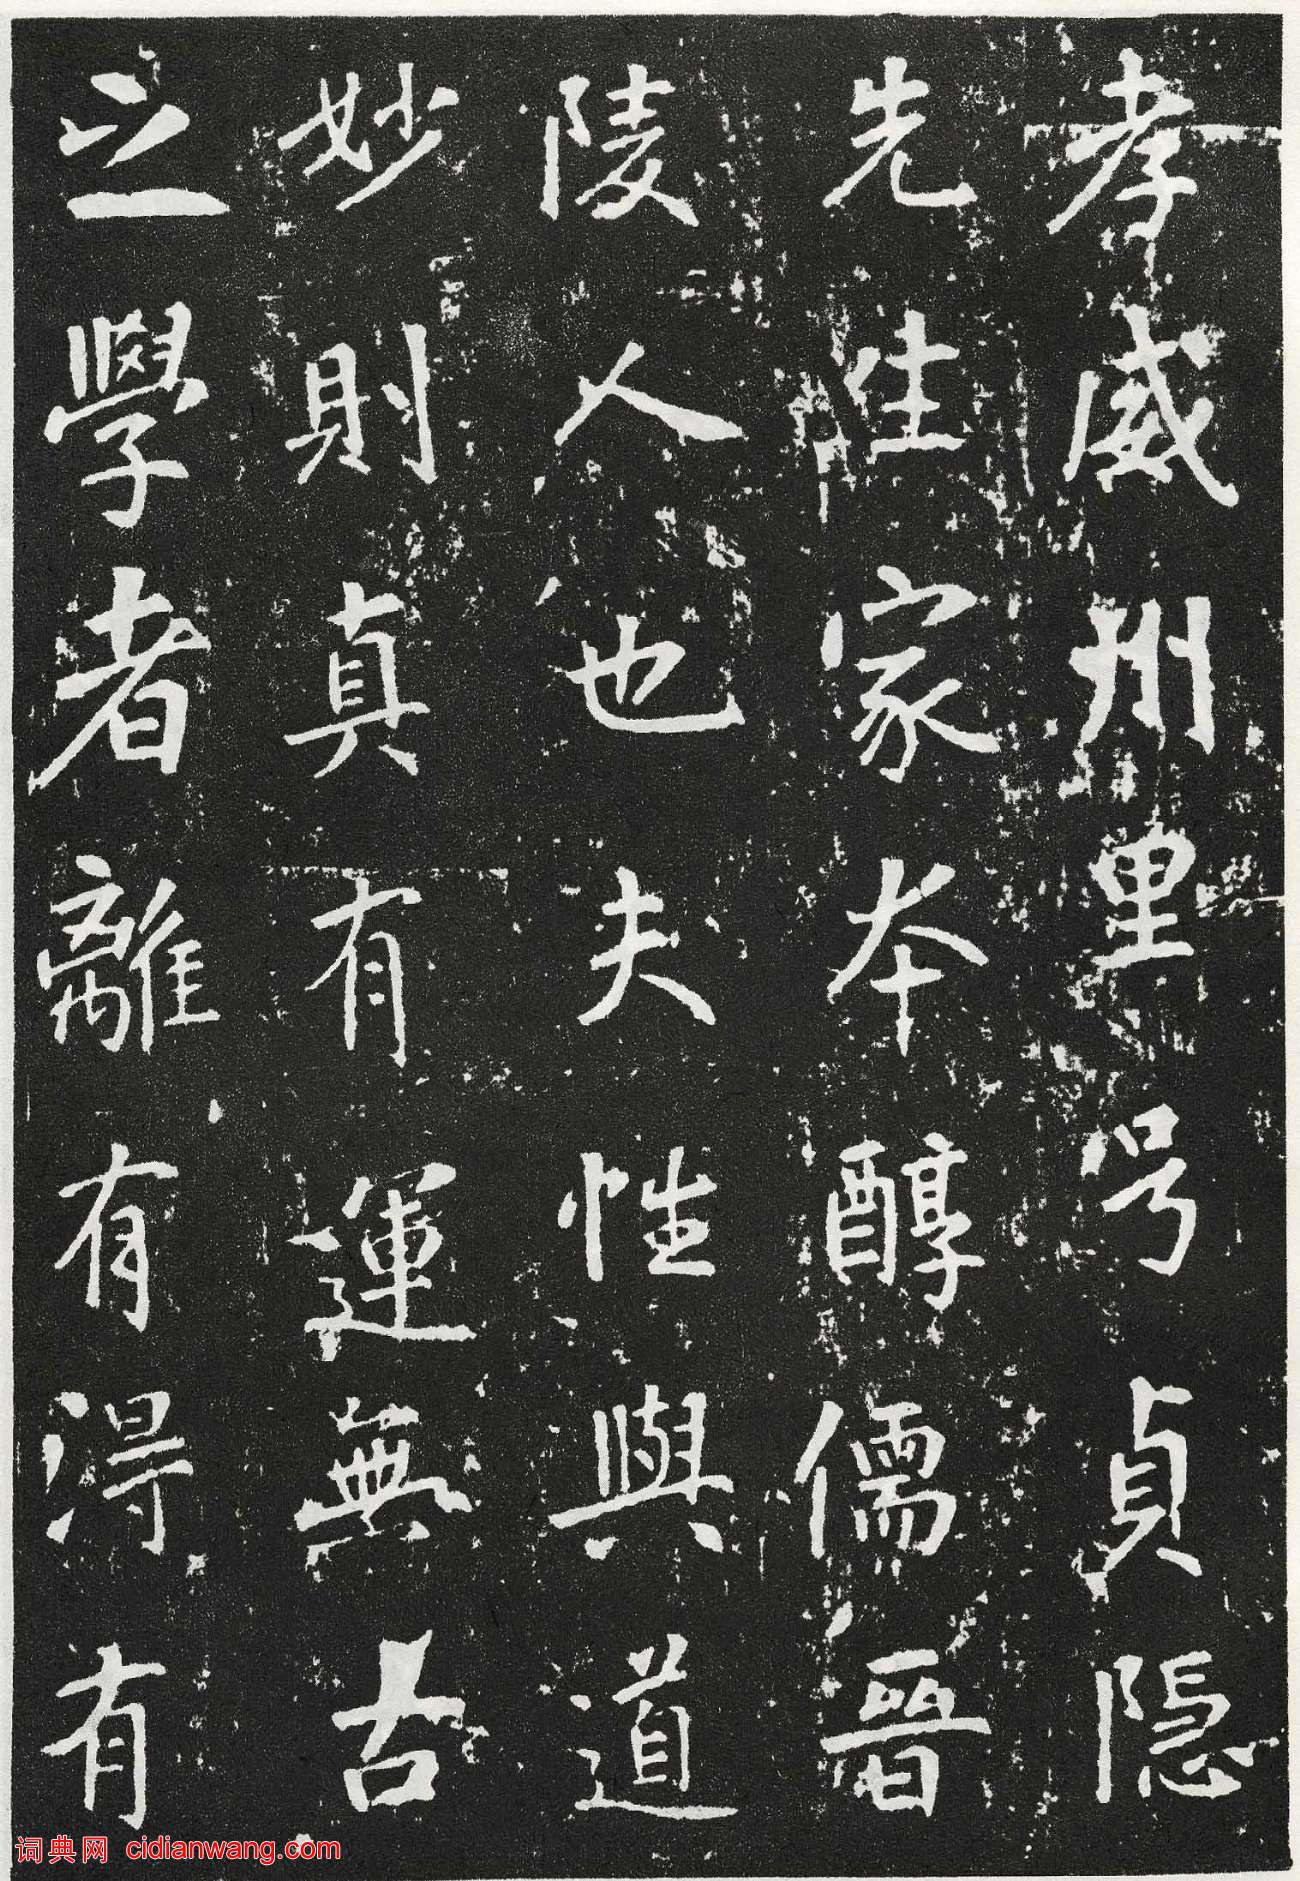 孝威州里号貞隱
先生家本醇儒晉
陵人也夫性與道
妙則真有運無古
之學者離有得有
词典网 cidianwang.com